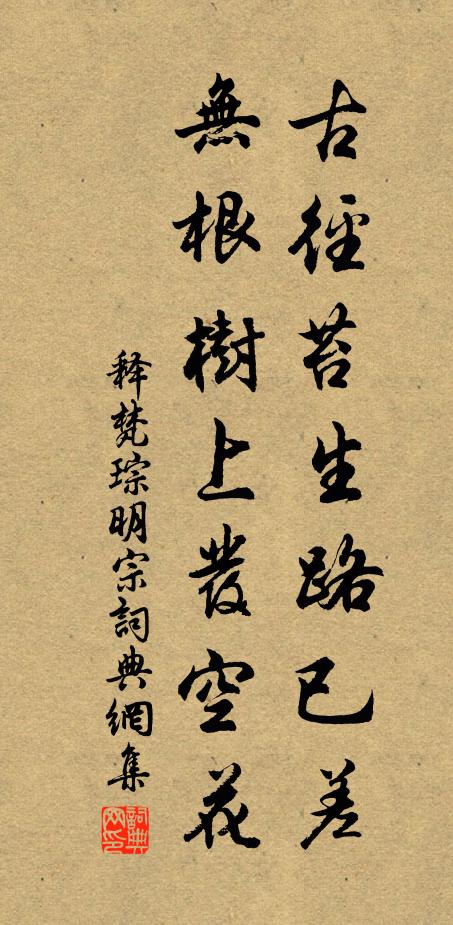 古徑苔生路已差
無根樹上發空花
释梵琮明宗詞典網集
詞典網印